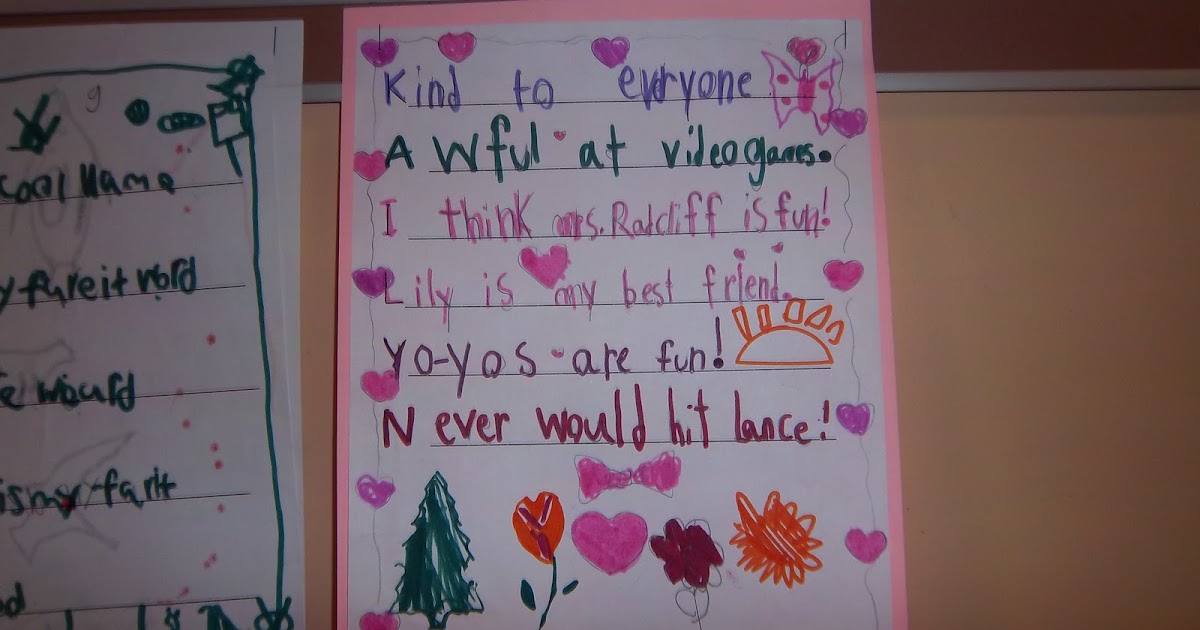 g
cool Name
y fareit word
e would
is my farit
ed
Kind to everyone
Awful at videogames.
I think mrs. Radcliff is fun!
Lily is my best friend.
Yo-yos are fun!
Never would hit lance!